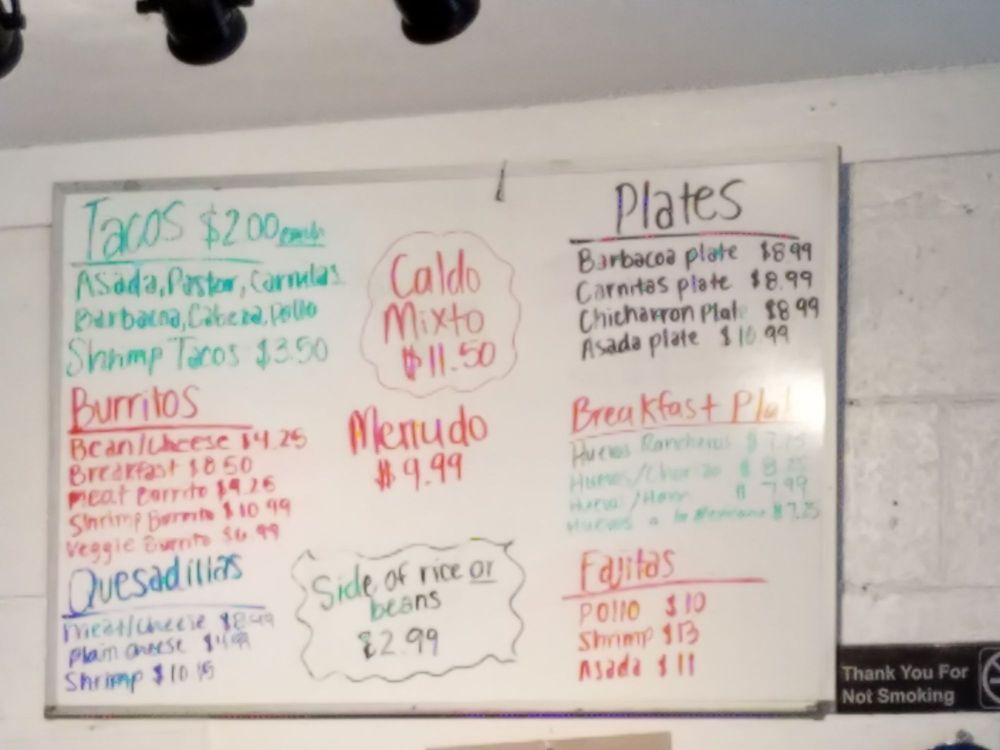 Tacos $2.00 each
Asada, Pastor, Carnitas
Barbacoa, Cabeza, Pollo
Shrimp Tacos $3.50
Burritos
Bean/Cheese $4.25
Breakfast $8.50
Meat Burrito $9.25
Shrimp Burrito $10.99
Veggie Burrito $6.99
Quesadillas
Meat/Cheese $8.49
Plain Cheese
Shrimp $10.15
Caldo
Mixto
$11.50
Menudo
$9.99
Side of rice or
beans
$2.99
Plates
Barbacoa plate $8.99
Carnitas plate $8.99
Chicharron Plat $8.99
Asada plate $10.99
Breakfast
Huevos Rancheros $7.25
Huevos/Chorizo $8.25
Huevos/Ham $7.99
Huevos a la Mexicana $7.25
Fajitas
Pollo $10
Shrimp $13
Asada $11
Thank You For
Not Smoking